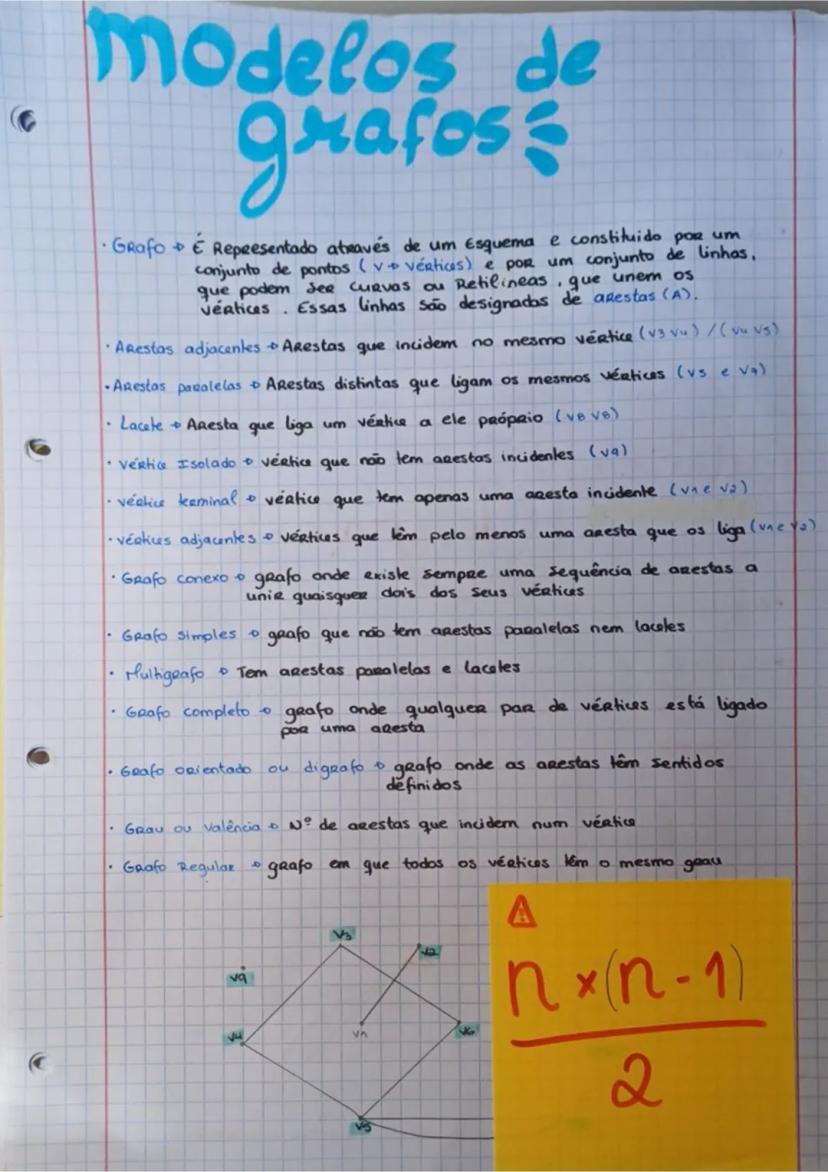 modelos de
grafos
· Grafo → É Representado através de um Esquema e constituido por um
conjunto de pontos (V → vértices) e por um conjunto de linhas,
que podem ser curvas ou Retilíneas, que unem os
vértices. Essas linhas são designadas de arestas (A).
· Arestas adjacentes → Arestas que incidem no mesmo vértice (V3 V4) / (V4 V5)
· Arestas paralelas → Arestas distintas que ligam os mesmos vértices (V5 e V7)
· Lacete → Aresta que liga um vértice a ele próprio (V8 V8)
· vértice Isolado → vértice que não tem arestas incidentes (V9)
· vértice terminal → vértice que tem apenas uma aresta incidente (V1 e V2)
· vértices adjacentes → vértices que têm pelo menos uma aresta que os liga (V1 e V2)
· Grafo conexo → grafo onde existe sempre uma sequência de arestas a
unir quaisquer dois dos seus vértices
· Grafo simples → grafo que não tem arestas paralelas nem lacetes
· Multigrafo → Tem arestas paralelas e lacetes
· Grafo completo → grafo onde qualquer par de vértices está ligado
por uma aresta
· Grafo orientado ou digrafo → grafo onde as arestas têm sentidos
definidos
· Grau ou Valência → Nº de arestas que incidem num vértice
· Grafo Regular → grafo em que todos os vértices têm o mesmo grau
V3
V2
V9
V4
V1
V6
V5
n × (n - 1)
2